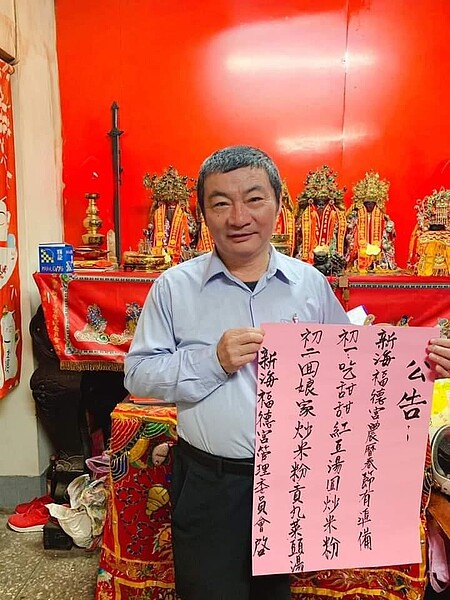 公告：
新海福德宮農曆春節有準備
初一吃甜甜紅豆湯圓炒米粉
初二回娘家炒米粉貢丸菜頭湯
新海福德宮管理委員會啓